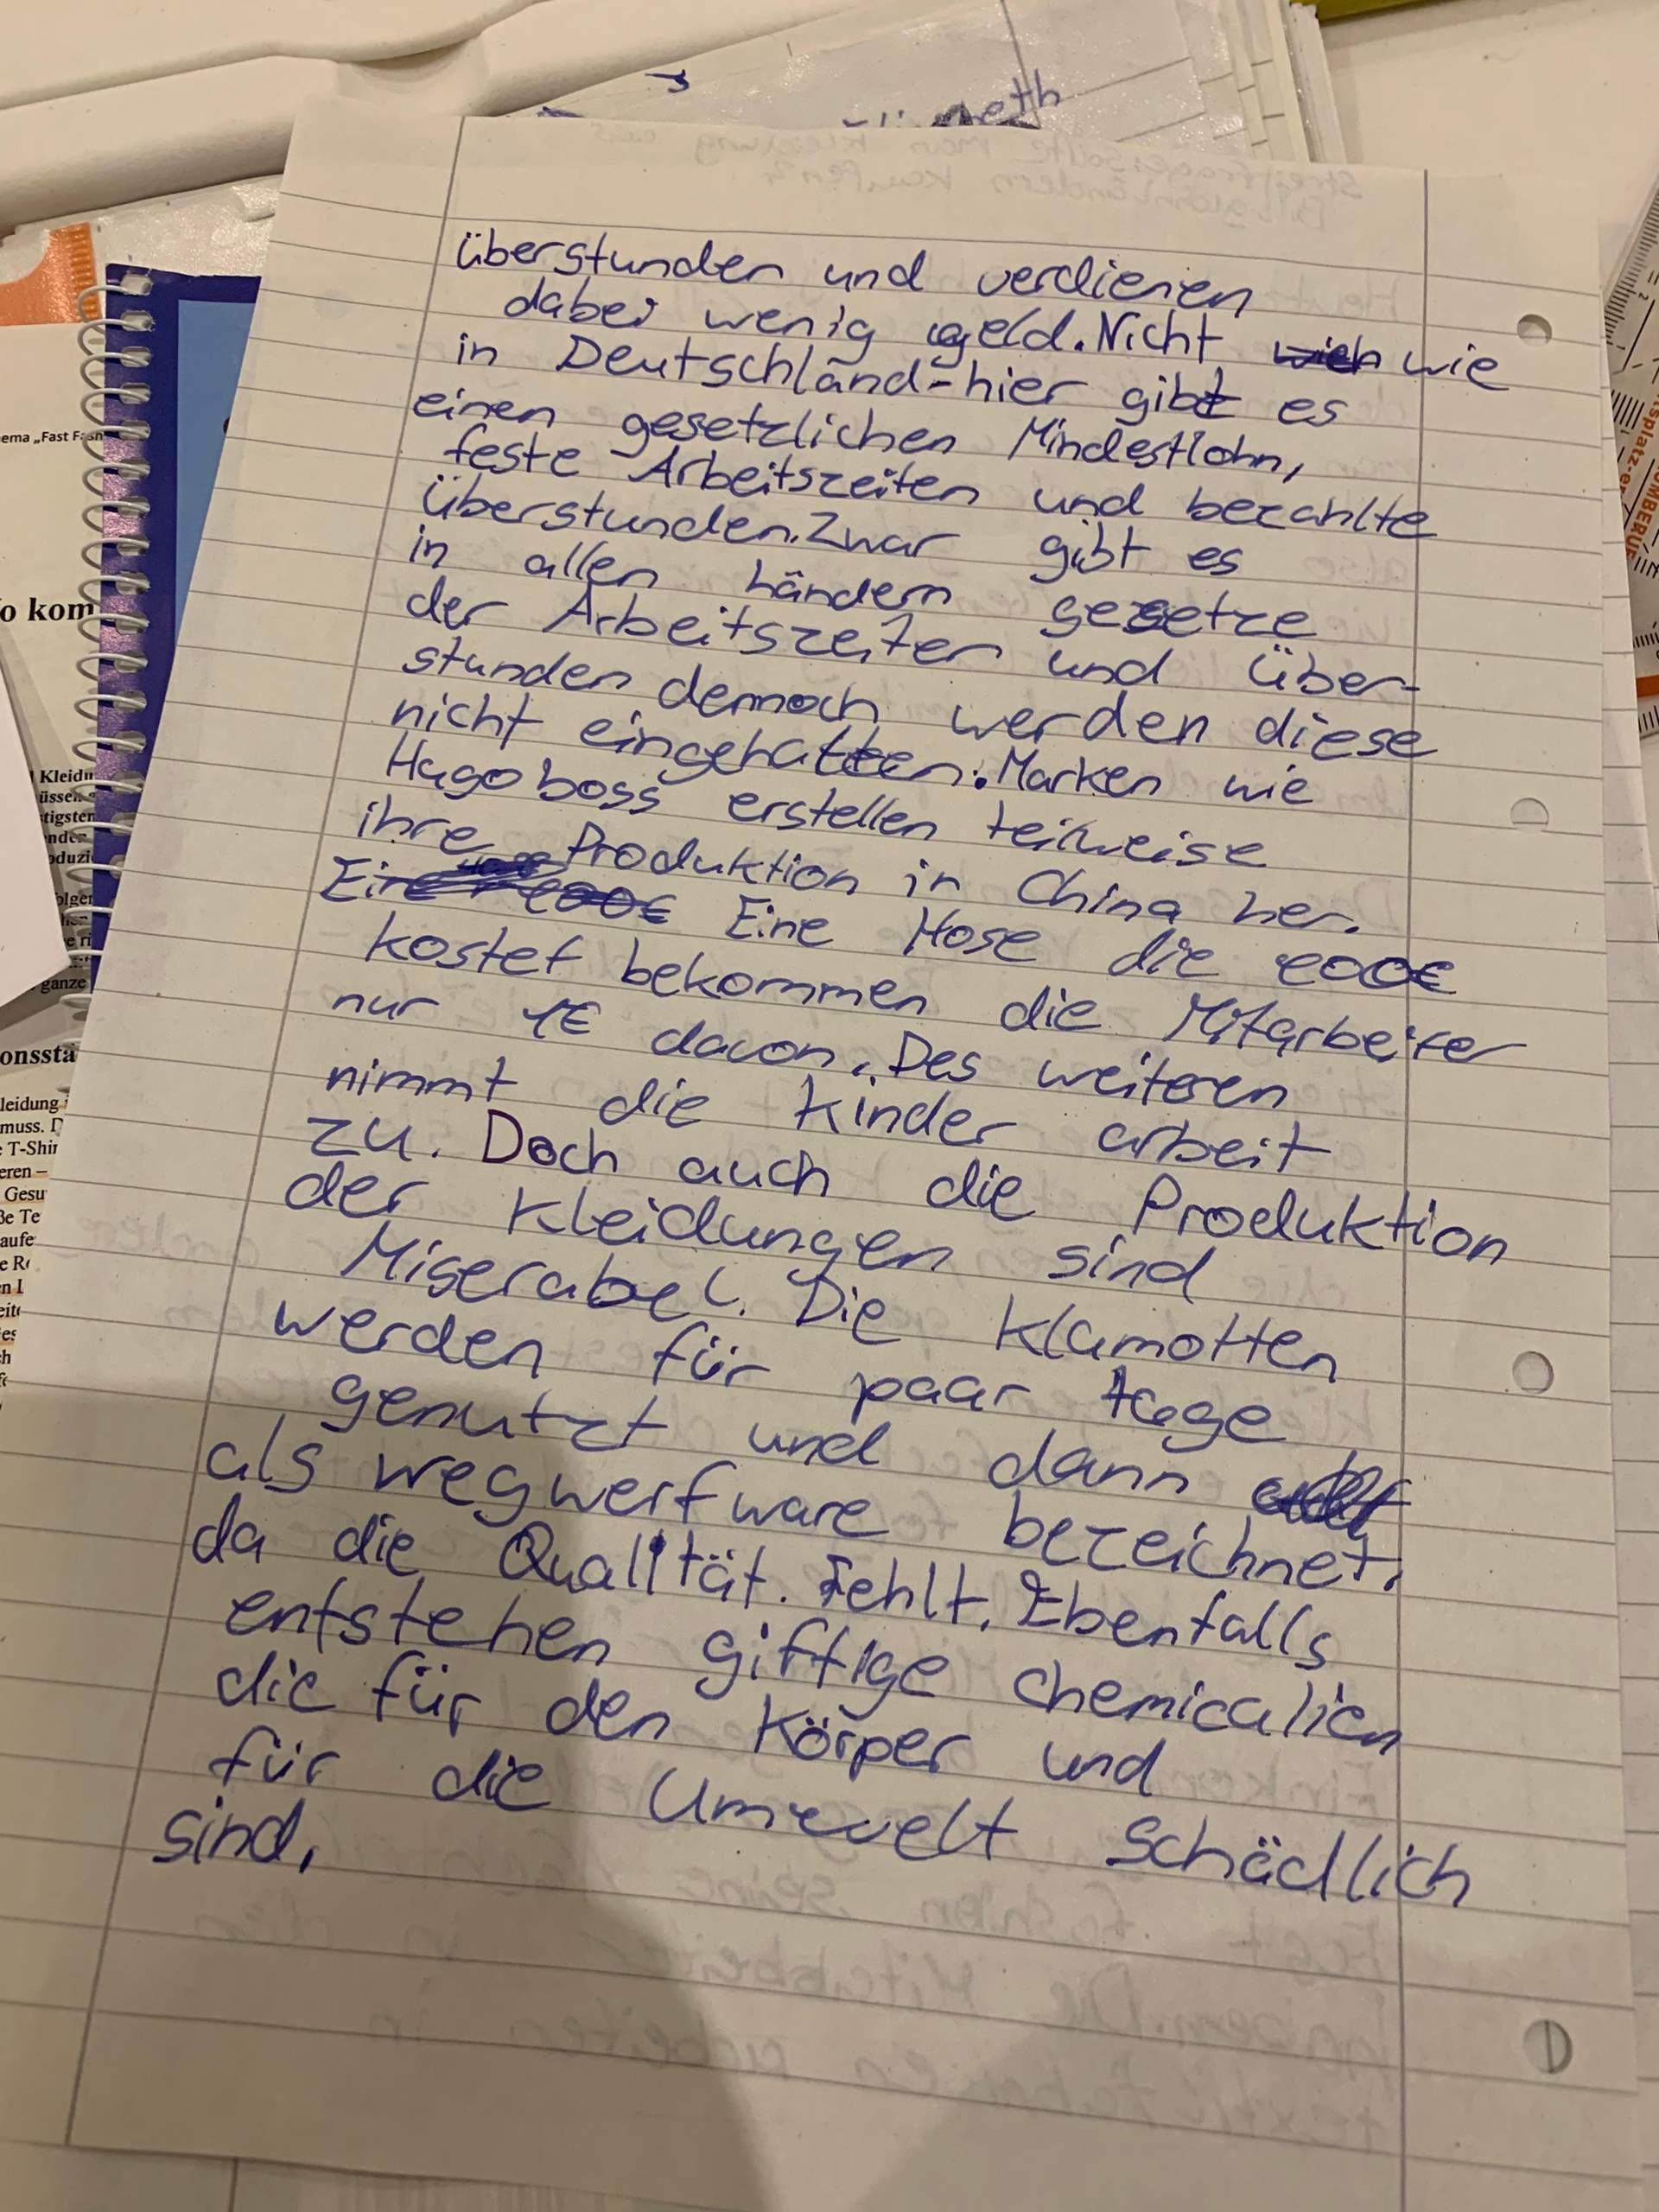 überstunden und verdienen
dabei wenig geld. Nicht wie
in Deutschland - hier gibt es
einen gesetzlichen Mindestlohn,
feste Arbeitszeiten und bezahlte
überstunden. Zwar gibt es
in allen Ländern gesetze
der Arbeitszeiten und über-
stunden dennoch werden diese
nicht eingehalten. Marken wie
Hugo boss erstellen teilweise
ihre Produktion in China her.
Eine Hose die 200€
kostet bekommen die Mitarbeiter
nur 1€ davon. Des weiteren
nimmt die Kinder arbeit
zu. Doch auch die Produktion
der Kleidungen sind
Miserabel. Die Klamotten
werden für paar tage
genutzt und dann
als wegwerfware bezeichnet.
da die Qualität. Fehlt. Ebenfalls
entstehen giftige chemicalien
die für den Körper und
für die Umwelt schädlich
sind.
ema „Fast Fash
o kom
Kleidu
tigsten
oduzi
ganze
onsstä
leidung
muss. D
T-Shir
eren –
Gesu
ße Te
aufe